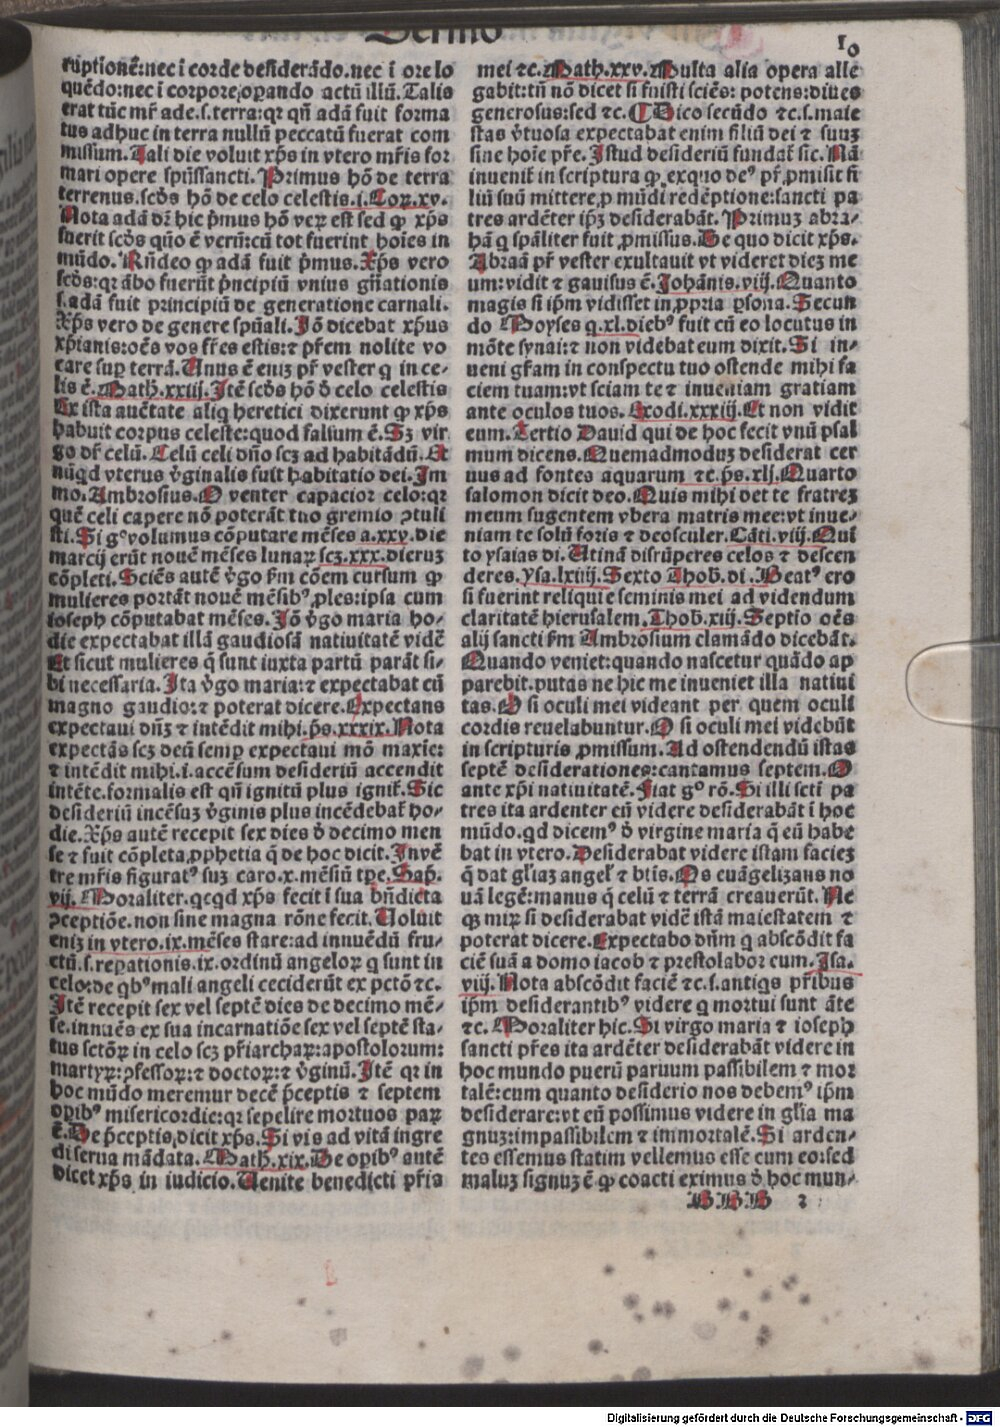 Sermo
10
ruptionē:nec ī corde desiderādo.nec ī ore lo
quēdo:nec ī corpore,oꝑando actū illū. Talis
erat tūc mr̄ ade.s.terra:qr qn̄ adā fuit forma
tus adhuc in terra nullū peccatū fuerat com
missum. Tali die voluit xp̄s in vtero mr̄is for
mari opere spūssancti. Primus hō de terra
terrenus.scd̄s hō de celo celestis.i.Coꝝ.xv.
Nota adā dr̄ hic pͥmus hō veꝝ est sed ꝙ xp̄s
fuerit scd̄s qūo ē verū:cū tot fuerint hoīes in
mūdo. Rn̄deo ꝙ adā fuit pͥmus. Xp̄s vero
scd̄s:qr ābo fuerūt pͥncipiū vnius gn̄ationis
s.adā fuit principiū de generatione carnali.
Xp̄s vero de genere spūali. Iō dicebat xp̄us
xp̄ianis:oēs vos fr̄es estis:⁊ pr̄em nolite vo
care suꝑ terrā. Unus ē eniꝫ pr̄ vester q in ce-
lis ē. Math.xxiij. Itē scd̄s hō d̓ celo celestis
Ex ista auctate aliq heretici dixerunt ꝙ xp̄s
habuit corpus celeste:quod falsum ē. Sꝫ vir
go dr̄ celū. Celū celi dn̄o scꝫ ad habitādū. Et
nūqd vterus v̓ginalis fuit habitatio dei. Im
mo. Ambrosius. O venter capacior celo:qr
quē celi capere nō poterāt tuo gremio ↄtuli
sti. Si gͦ volumus cōputare mēses a.xxv.die
marcij erūt nouē mēses lunaꝝ scꝫ.xxx.dieruꝫ
cōpleti. Sciēs autē v̓go ẜm cōem cursum ꝙ
mulieres portāt nouē mēsibꝰ ,ples:ipsa cum
ioseph cōputabat mēses. Iō v̓go maria ho-
die expectabat illā gaudiosā natiuitatē vidē
Et sicut mulieres q̄ sunt iuxta partū parāt si-
bi necessaria. Ita v̓go maria:⁊ expectabat cū
magno gaudio:⁊ poterat dicere. Expectans
expectaui dn̄ꝫ ⁊ intēdit mihi.ps̄.xxxix. Nota
expectās scꝫ deū semꝑ expectaui mō maxie:
⁊ intēdit mihi.i.accēsum desideriū accendit
intēte.formalis est qn̄ ignitū plus ignit̄. Sic
desideriū incēsuꝫ v̓ginis plus incēdebat̄ ho-
die. Xp̄s autē recepit sex dies d̓ decimo men
se ⁊ fuit cōpleta,pphetia q̄ de hoc dicit. Inuē
tre mr̄is figuratꝰ suꝫ caro.x.mēsiū tpe. Sap̄.
vij. Moraliter.qcqd xp̄s fecit ī sua bn̄dicta
ↄceptiōe.non sine magna rōne fecit. Uoluit
eniꝫ in vtero.ix.mēses stare:ad innuēdū fru-
ctū.s.repationis.ix.ordinū angeloꝝ q sunt in
celo:de qbꝰ mali angeli ceciderūt ex pctō ⁊c.
Itē recepit sex vel septē dies de decimo mē-
se.innuēs ex sua incarnatiōe sex vel septē sta-
tus sctōꝝ in celo scꝫ pr̄iarchaꝝ:apostolorum:
martyꝝ:ↄfessoꝝ:⁊ doctoꝝ:⁊ v̓ginū. Itē qr in
hoc mūdo meremur decē p̄ceptis ⁊ septem
opibꝰ misericordie:qr sepelire mortuos paꝝ
ē. De p̄ceptis,dicit xp̄s. Si vis ad vitā ingre
di serua mādata. Math.xix. De opibꝰ autē
dicet xp̄s in iudicio. Uenite benedicti pr̄is
mei ⁊c. Math.xxv. Multa alia opera alle
gabit:tn̄ nō dicet si fuisti sciēs: potens:diues
generosus:sed ⁊c. ¶ Dico secūdo ⁊c.s.maie
stas v̓tuosa expectabat enim filiū dei ⁊ suuꝫ
sine hoīe pr̄e. Istud desideriū fundat̄ sic. Nā
inuenit̄ in scriptura ꝙ exquo deꝰ pr̄ ,pmisit fi
liū suū mittere,p mūdi redēptione:sancti pa
tres ardēter ip̄ꝫ desiderabāt. Primuꝫ abra-
hā q spāliter fuit ,pmissus. De quo dicit xp̄s.
Abraā pr̄ vester exultauit vt videret dieꝫ me
um:vidit ⁊ gauisus ē. Johānis.viij. Quanto
magis si ip̄m vidisset in,ppria ꝑsona. Secun
do Moyses q.xl.diebꝰ fuit cū eo locutus in
mōte synai:⁊ non videbat eum dixit. Si in-
ueni gr̄am in conspectu tuo ostende mihi fa
ciem tuam:vt sciam te ⁊ inueniam gratiam
ante oculos tuos. Exodi.xxxiij. Et non vidit
eum. Tertio Dauid qui de hoc fecit vnū psal
mum dicens. Quemadmoduꝫ desiderat cer
uus ad fontes aquarum ⁊c.ps̄.xlj. Quarto
salomon dicit deo. Quis mihi det te fratreꝫ
meum sugentem vbera matris mee:vt inue-
niam te solū foris ⁊ deosculer. Cāti.viij. Qui
to ysaias di. Utinā disrūperes celos ⁊ descen
deres. ysa.lxiiij. Sexto Thob.di. Beatꝰ ero
si fuerint reliquie seminis mei ad videndum
claritatē hierusalem. Thob.xiij. Septio oēs
alij sancti ẜm Ambrosium clamādo dicebāt.
Quando veniet:quando nascetur quādo ap
parebit.putas ne hic me inueniet illa natiui
tas. O si oculi mei videant per quem oculi
cordis reuelabuntur. O si oculi mei videbūt
in scripturis ,pmissum. Ad ostendendū istas
septē desiderationes:cantamus septem. O
ante xp̄i natiuitatē. Fiat gͦ rō. Si illi scti pa
tres ita ardenter cū videre desiderabāt ī hoc
mūdo.qd dicemꝰ d̓ virgine maria q eū habe
bat in vtero. Desiderabat videre istam facieꝫ
q̄ dat gl̄iaꝫ angel̄ ⁊ btīs. Os euāgelizans no
uā legē:manus q̄ celū ⁊ terrā creauerūt. Ne
qꝫ miꝝ si desiderabat vidē istā maiestatem ⁊
poterat dicere. Expectabo dn̄m q abscōdit fa
ciē suā a domo iacob ⁊ prestolabor eum. Isa.
viij. Nota abscōdit faciē ⁊c.s.antiqs pr̄ibus
ip̄m desiderantibꝰ videre q mortui sunt āte
⁊c. Moraliter hic. Si virgo maria ⁊ ioseph
sancti pr̄es ita ardēter desiderabāt videre in
hoc mundo puerū paruum passibilem ⁊ mor
talē:cum quanto desiderio nos debemꝰ ip̄m
desiderare:vt eū possimus videre in gl̄ia ma
gnuꝫ:impassibilem ⁊ immortalē. Si arden-
tes essemus statim vellemus esse cum eo:sed
maluꝫ signuꝫ ē ꝙ coacti eximus d̓ hoc mun-
BBB 2
Digitalisierung gefördert durch die Deutsche Forschungsgemeinschaft - DFG